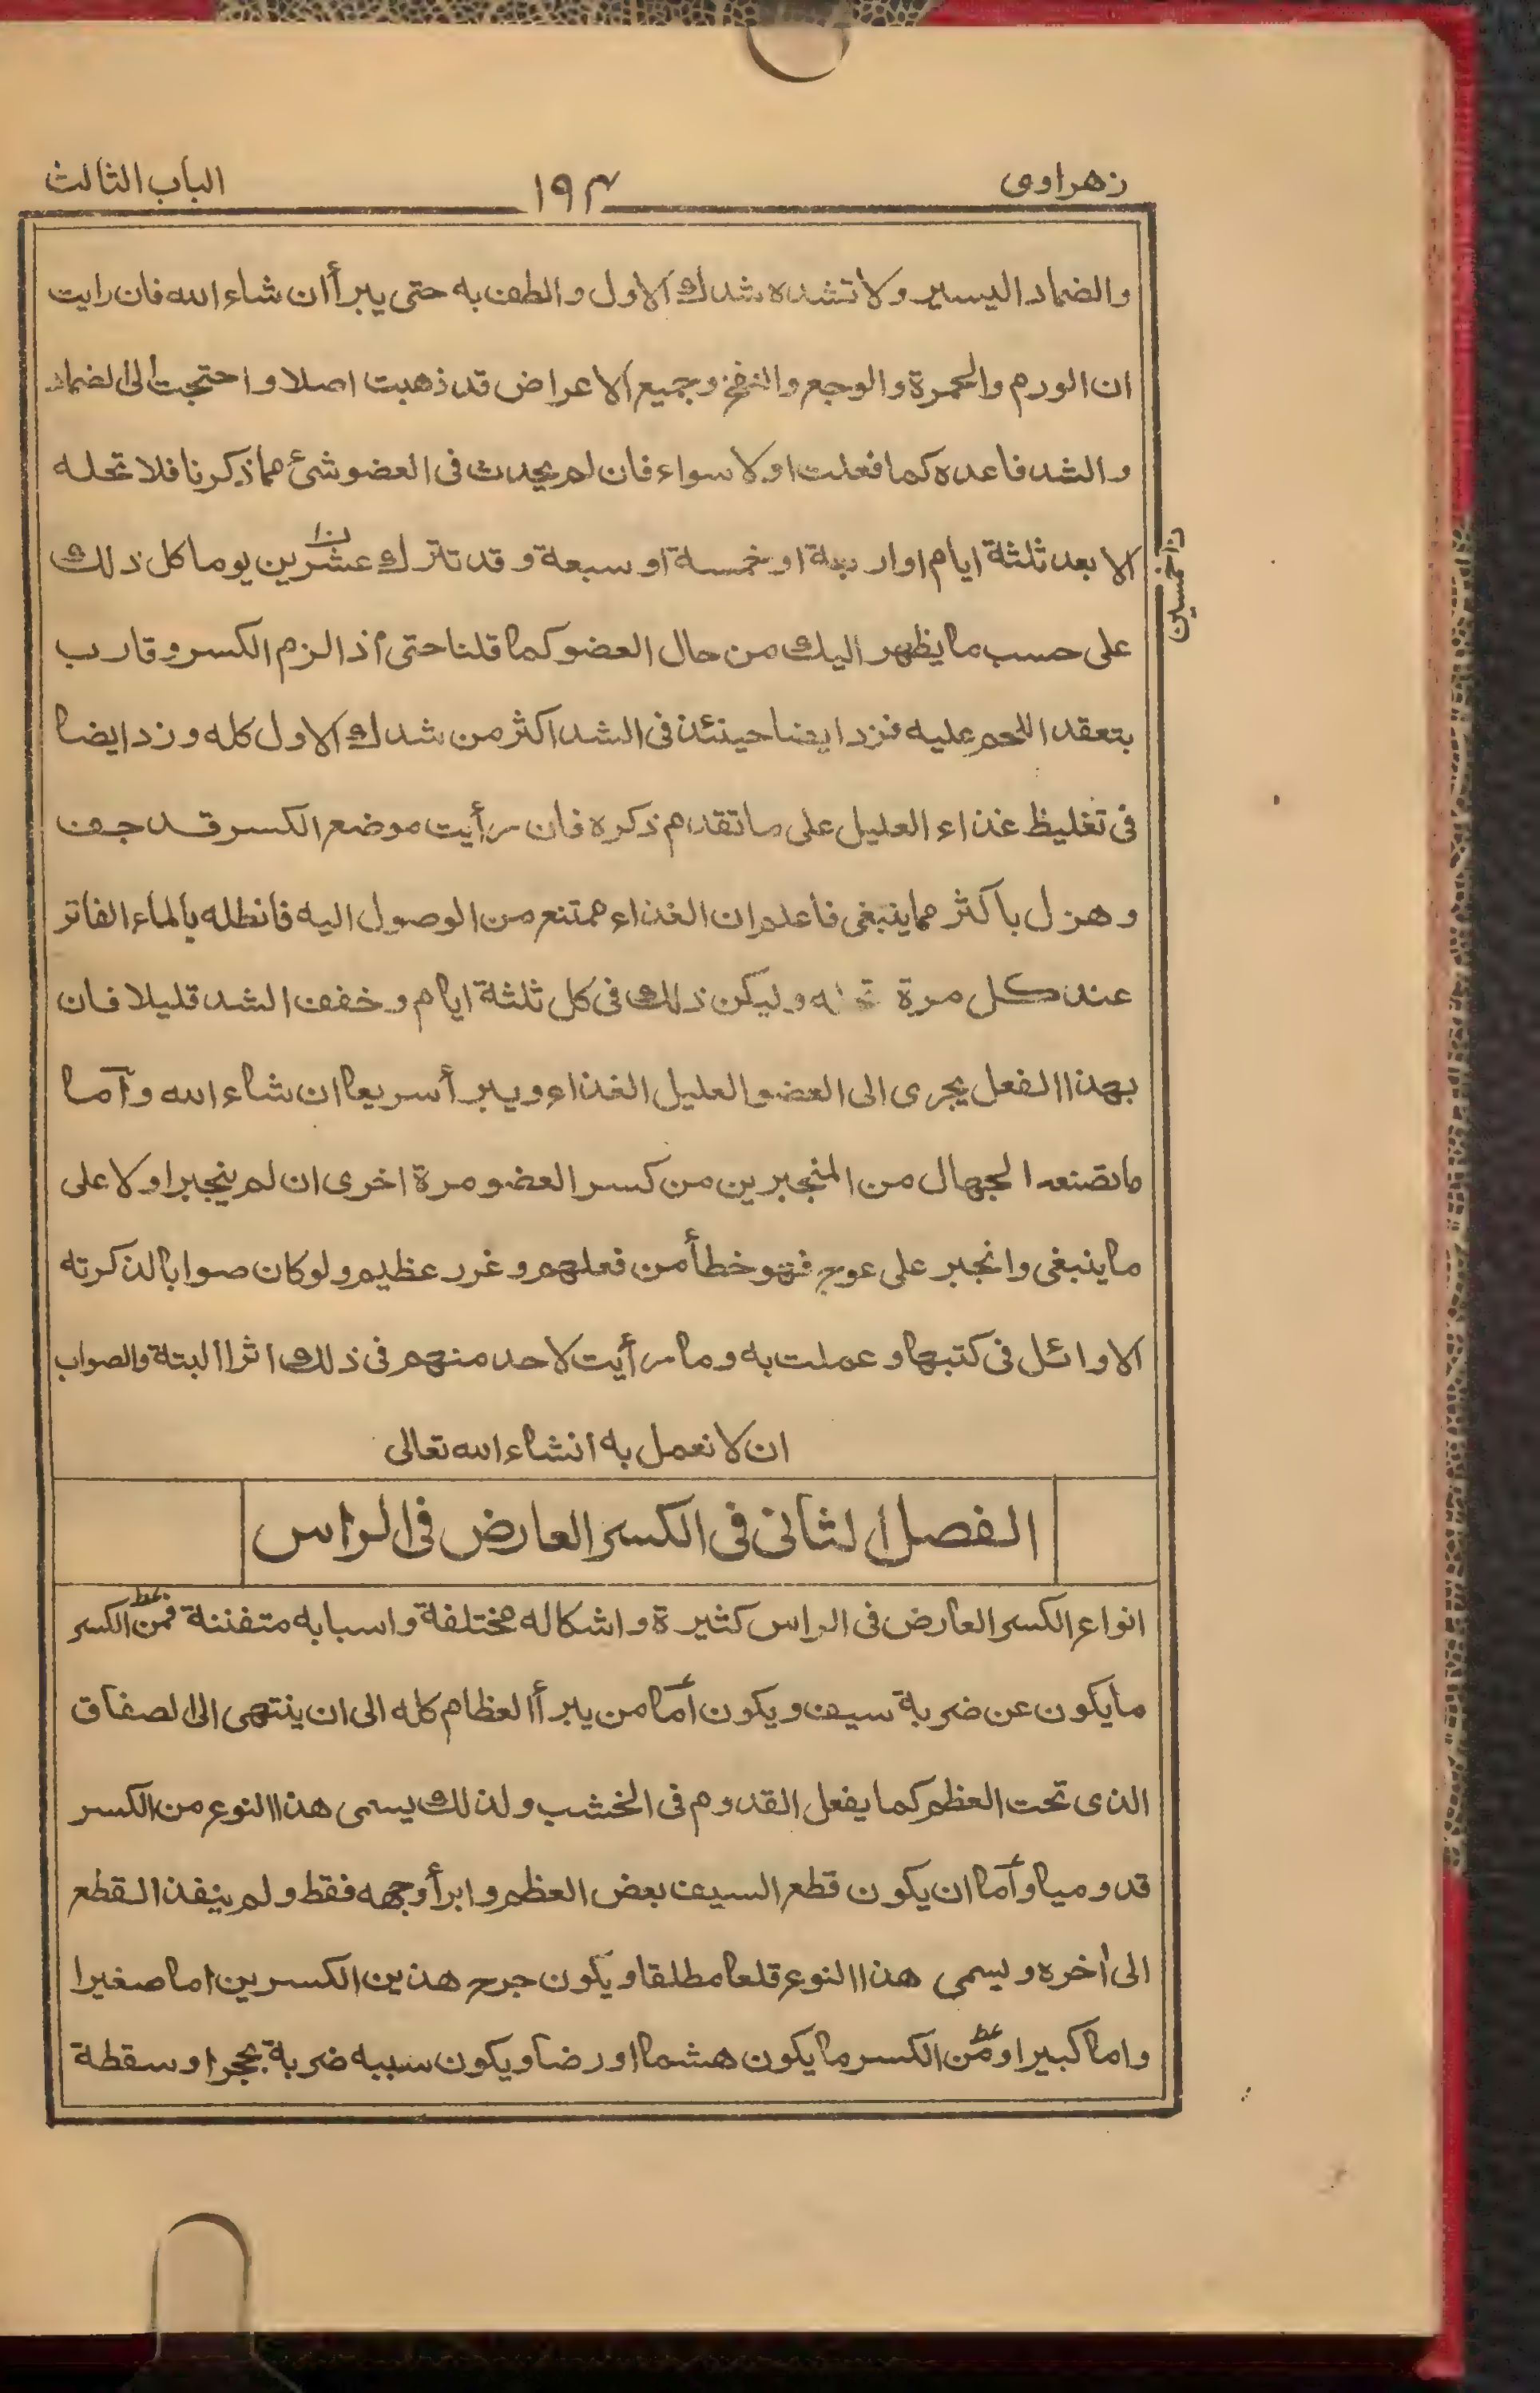 زهراوى ١٩٤ الباب الثالث
والضماد اليسير ولا تشده شدك الاول والطف به حتى يبرأ ان شاء الله فان رايت
ان الورم والحمرة والوجع والنفخ وجميع الاعراض قد ذهبت اصلا واحتجت الى الضماد
والشد فاعده كما فعلت اولا سواء فان لم يحدث فى العضو شئ مما ذكرنا فلا تحله
الا بعد ثلثة ايام او اربعة او خمسة او سبعة وقد تترك عشرين يوما كل ذلك
خمسين
على حسب ما يظهر اليك من حال العضو كما قلنا حتى اذا لزم الكسر وقارب
بتعقد اللحم عليه فزد ايضا حينئذ فى الشد اكثر من شدك الاول كله وزد ايضا
فى تغليظ غذاء العليل على ما تقدم ذكره فان رأيت موضع الكسر قد جف
وهزل باكثر مما ينبغى فاعلم ان الغذاء ممتنع من الوصول اليه فانطله بالماء الفاتر
عند كل مرة وليكن ذلك فى كل ثلثة ايام وخفف الشد قليلا فان
بهذا الفعل يجرى الى العضو العليل الغذاء ويبرأ سريعا ان شاء الله وآما
ما تصنعه الجهال من المنجبرين من كسر العضو مرة اخرى ان لم ينجبر اولا على
ما ينبغى وانجبر على عوج فهو خطأ من فعلهم وغرر عظيم ولو كان صوابا لذكرته
الاوائل فى كتبها وعملت به وما رأيت لاحد منهم فى ذلك اثرا البتة والصواب
ان لا نعمل به انشاء الله تعالى
الفصل الثانى فى الكسر العارض فى الراس
انواع الكسر العارض فى الراس كثيرة واشكاله مختلفة واسبابه متفننة فمن الكسر
ما يكون عن ضربة سيف ويكون آما من يبرأ العظام كله الى ان ينتهى الى الصفاق
الذى تحت العظم كما يفعل القدوم فى الخشب ولذلك يسمى هذا النوع من الكسر
قدوميا وآما ان يكون قطع السيف بعض العظم وابرأ وجهه فقط ولم ينفذ القطع
الى أخره ويسمى هذا النوع قلعا مطلقا ويكون جرح هذين الكسرين اما صغيرا
واما كبيرا ومن الكسر ما يكون هشما او رضا ويكون سببه ضربة بحجر او سقطة